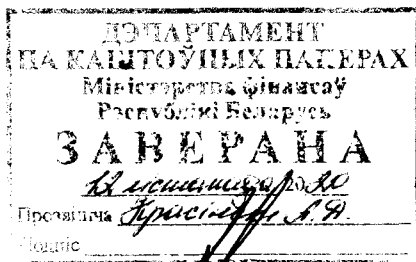 ДЭПАРТАМЕНТ
ПА КАШТОЎНЫХ ПАПЕРАХ
Міністэрства фінансаў
Рэспублікі Беларусь
ЗАВЕРАНА
12 лістапада 2020
Прозвішча А.
Подпіс